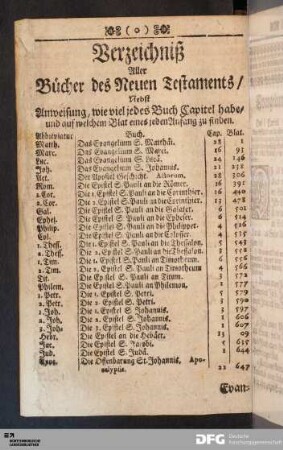 ( o )
Verzeichniß
Aller
Bücher des Neuen Testaments/
Nebst
Anweisung, wie viel jedes Buch Capitel habe/
und auf welchem Blat eines jeden Anfang zu finden.
Abbreviatur Buch. Cap. Blat.
Matth. Das Evangelium S. Matthäi. 28 1
Marc. Das Evangelium S. Marci. 16 93
Luc. Das Evangelium S. Lucä. 24 146
Joh. Das Evangelium S. Johannis. 21
Act. Der Apostel Geschicht. Actorum. 28 306
Rom. Die Epistel S. Pauli an die Römer. 16 395
1. Cor. Die 1. Epistel S. Pauli an die Corinthier. 16
2. Cor. Die 2. Epistel S. Pauli an die Corinthier. 13 478
Gal. Die Epistel S. Pauli an die Galater. 6 502
Ephes. Die Epistel S. Pauli an die Epheser. 6 514
Philip. Die Epistel S. Pauli an die Philipper. 4
Col. Die Epistel S. Pauli an die Colosser. 4
1. Thess. Die 1. Epistel S. Pauli an die Thessalon. 5
2. Thess. Die 2. Epistel S. Pauli an die Thessalon. 3
1. Tim. Die 1. Epistel S. Pauli an Timotheum. 6
2. Tim. Die 2. Epistel S. Pauli an Timotheum 4
Tit. Die Epistel S. Pauli an Titum. 3
Philem. Die Epistel S. Pauli an Philemon. 1
1. Petr. Die 1. Epistel S. Petri. 5
2. Petr. Die 2. Epistel S. Petri. 3 590
1. Joh. Die 1. Epistel S. Johannis. 5 597
2. Joh. Die 2. Epistel S. Johannis. 1 606
3. Joh. Die 3. Epistel S. Johannis. 1 607
Hebr. Die Epistel an die Hebräer. 13
Jac. Die Epistel S. Jacobi. 5
Jud. Die Epistel S. Judä. 1 644
Apoc. Die Offenbarung St. Johannis, Apo-
calypsis. 22 647
Evan-
DFG Deutsche Forschungsgemeinschaft